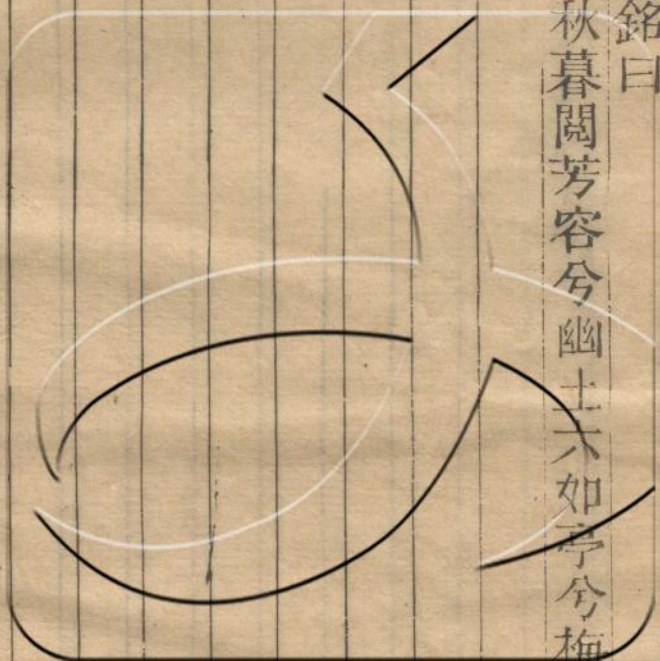 銘曰
秋暮閲芳容兮幽土六如亭兮梅
の